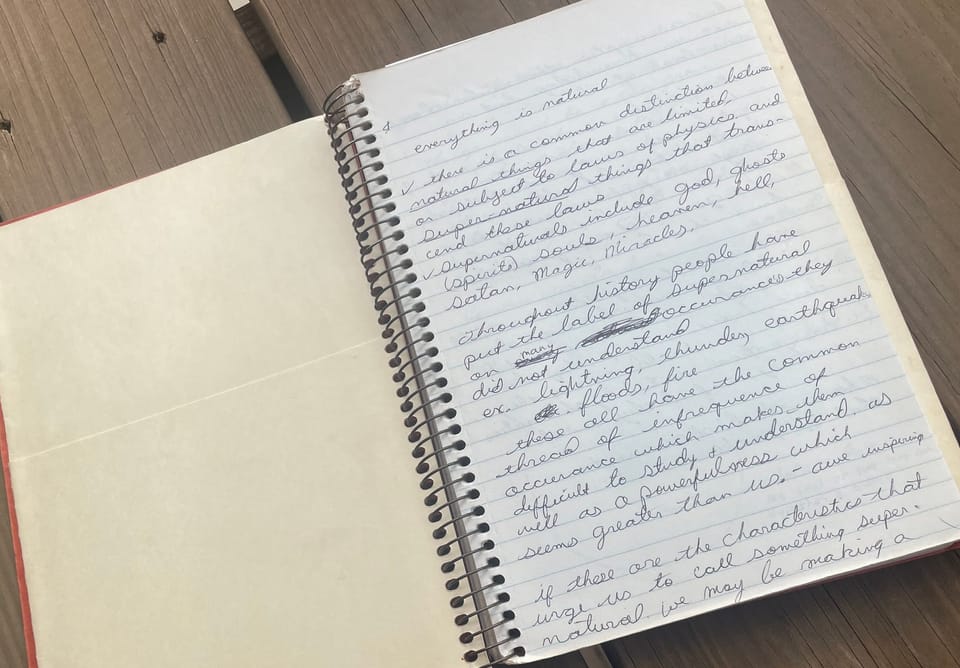 everything is natural
✓ there is a common distinction between
natural things that are limited
or subject to laws of physics and
super-natural things that trans-
cend these laws.
✓ supernaturals include god, ghosts
(spirits) souls, heaven, hell,
satan, Magic, Miracles.
Throughout history people have
put the label of supernatural
on many occurances they
did not understand
ex. lightning, thunder, earthquake
floods, fire
these all have the common
thread of infrequence of
occurance which makes them
difficult to study & understand, as
well as a powerfulness which
seems greater than us. - awe inspiring
if these are the characteristics that
urge us to call something super-
natural we may be making a